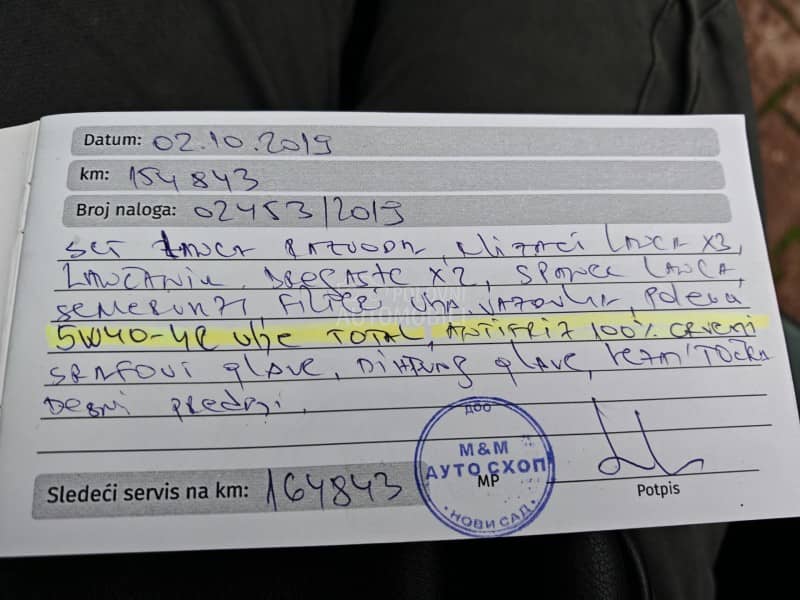 Datum: 02.10.2019
km: 154 843
Broj naloga: 02453/2019
SET LANCA RAZVODA, KLIZAČI LANCA X3,
LANČANIK BREGASTE X2, ŠPANER LANCA,
SEMERINZI, FILTER ULJA VAZDUHA, POLENA
5W40-4L ULJE TOTAL, ANTIFRIZ 100% CRVENI
ŠRAFOVI GLAVE, DIHTUNG GLAVE, TOČKA
DESNI PREDNJI.
Sledeći servis na km: 164843
ДОО
M&M
АУТО СХОП
НОВИ САД
MP
Potpis